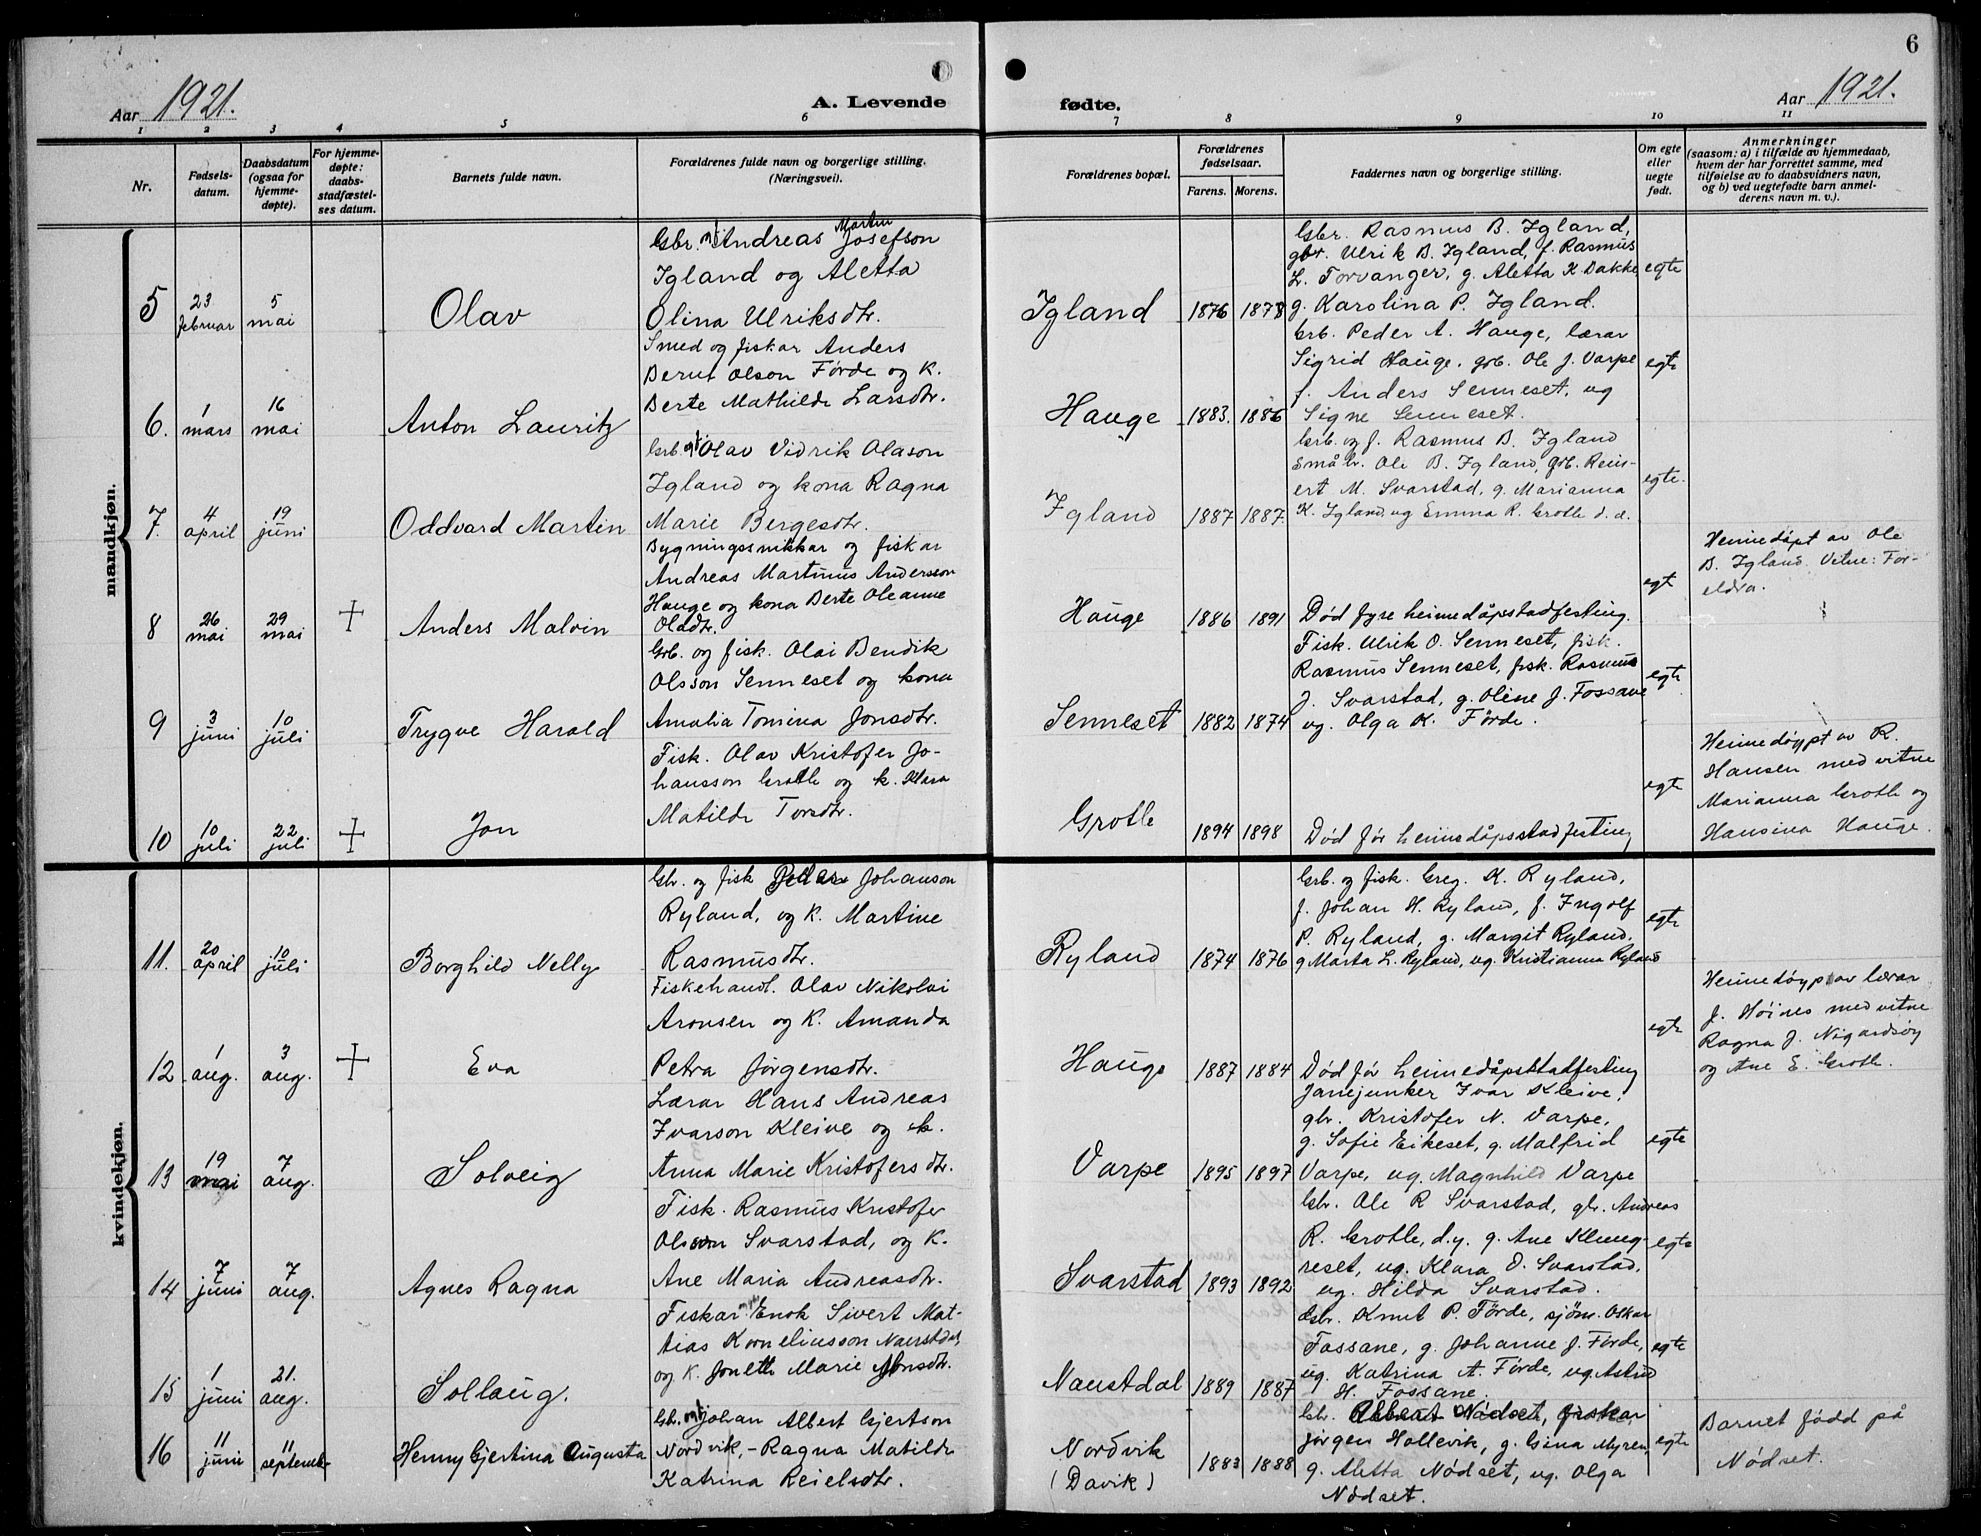 6
Aar 1921.
A. Levende fødte.
Aar 1921.
1 2 3 4 5 6 7 8 9 10 11
Nr.
Fødsels-
datum.
Daabsdatum
(ogsaa for
hjemme-
døpte).
For hjemme-
døpte:
daabs-
stadfæstel-
ses datum.
Barnets fulde navn.
Forældrenes fulde navn og borgerlige stilling.
(Næringsvei).
Forældrenes bopæl.
Forældrenes
fødselsaar.
Farens. Morens.
Faddernes navn og borgerlige stilling.
Om egte
eller
uegte
født.
Anmerkninger
(saasom: a) i tilfælde av hjemmedaab,
hvem der har forrettet samme, med
tilføielse av to daabsvidners navn,
og b) ved uegtefødte barn anmel-
derens navn m. v.).
mandkjøn.
5
23
februar
5
mai
Olav
Gbr. Andreas Martin Josefson
Igland og Aletta
Olina Ulriksdtr.
Igland
1876 1878
Gbr. Rasmus B. Igland,
gbr. Ulrik B. Igland, f. Rasmus
L. Torvanger, g. Aletta K. Dakke
g. Karolina P. Igland.
egte
6.
1
mars
16
mai
Anton Lauritz
Smed og fiskar Anders
Bernt Olson Førde og k.
Berte Mathilde Larsdtr.
Hauge
1883. 1886
Grb. Peder A. Hauge, lærar
Sigrid Hauge, grb. Ole J. Varpe
f. Anders Senneset, ug
Signe Senneset.
egte
7.
4
april
19
juni
Oddvard Martin
Grb. Olav Vidrik Olason
Igland og kona Ragna
Marie Bergesdtr.
Igland
1887 1887.
Grb. og f. Rasmus B. Igland
småbr. Ole B. Igland, grb. Rein-
ert M. Svarstad, g. Marianna
K. Igland, ug Emma R. Grotle d. e.
egte.
8
26
mai
29
mai
+
Anders Malvin
Bygningssnikkar og fiskar
Andreas Martinus Andersson
Hauge og kona Berte Oleanne
Oladtr.
Hauge
1886 1891
Død fyre heimedåpstadfesting.
egt
Heimedøpt av Ole
B. Igland. Vitne: For-
eldra.
9
3
juni
10
juli
Trygve Harald
Grb. og fisk. Olai Bendik
Olsson Senneset og kona
Amalia Tomina Jonsdtr.
Senneset
1882 1874
Fisk. Ulrik O. Senneset, fisk.
Rasmus Senneset, fisk. Rasmus
J. Svarstad, g. Oline J. Fossane
ug. Olga K. Førde.
egte
10
10
juli
22
juli
+
Jon
Fisk. Olav Kristofer Jo-
hansson Grotle og k. Klara
Matilde Torsdtr.
Grotle
1894 1898
Død før heimedåpsstadfesting
egte
Heimedøypt av R.
Hansen med vitne
Marianna Grotle og
Hansina Hauge.
kvindekjøn.
11.
20
april
10
juli
Borghild Nelly
Gbr. og fisk Peder Johanson
Ryland, og k. Martine
Rasmusdtr.
Ryland
1874 1876
Grb. og fisk. Greg. K. Ryland,
f. Johan H. Ryland, f. Ingolf
P. Ryland, g. Margit Ryland,
g Marta L. Ryland, ug. Kristianna Ryland
egte
12
1
aug.
3
aug.
+
Eva
Fiskehandl. Olav Nikolai
Aronsen og k. Amanda
Petra Jørgensdtr.
Hauge
1887 1884
Død før heimedåpsstadfesting
egte
Heimedøypt av lærar
J. Høines med vitne
Ragna J. Nigardsøy
og Ane E. Grotle.
13
19
mai
7
aug.
Solveig
Lærar Hans Andreas
Ivarson Kleive og k.
Anna Marie Kristofersdtr.
Varpe
1895 1897
Ivar Kleive,
gbr. Kristofer N. Varpe,
g. Sofie Eikeset, g. Malfrid
Varpe, ug. Magnhild Varpe
egte
14
7
juni
7
aug.
Agnes Ragna
Fisk. Rasmus Kristofer
Olsson Svarstad, og k.
Ane Maria Andreasdtr.
Svarstad
1893 1892
Gbr. Ole R Svarstad, gbr. Andreas
R. Grotle, d.y. g. Ane Kleng-
reset, ug. Klara O. Svarstad,
ug. Hilda Svarstad.
egte
15
1
juni
21.
aug.
Sollaug.
Fiskar Enok Sivert Mat-
tias Korneliusson Naustdal
og k. Jonette Marie Jonsdtr.
Naustdal
1889 1887
Gbr. Knut P. Førde, sjøm. Oskar
Fossane, g. Johanne J. Førde,
ug. Katrina A. Førde, ug. Astrid
H. Fossane.
egte
16
11
juni
11
septemb-
Henny Gjertina Augusta
Gbr. Johan Albert Gjertson
Nordvik, - Ragna Matilde
Katrina Reielsdtr.
Nordvik
(Davik)
1883 1888
Gbr. Albert Nødset, fiskar
Jørgen Hollevik, g. Gina Myren
g. Aletta Nødset, ug. Olga
Nødset.
egte
Barnet født på
Nødset.